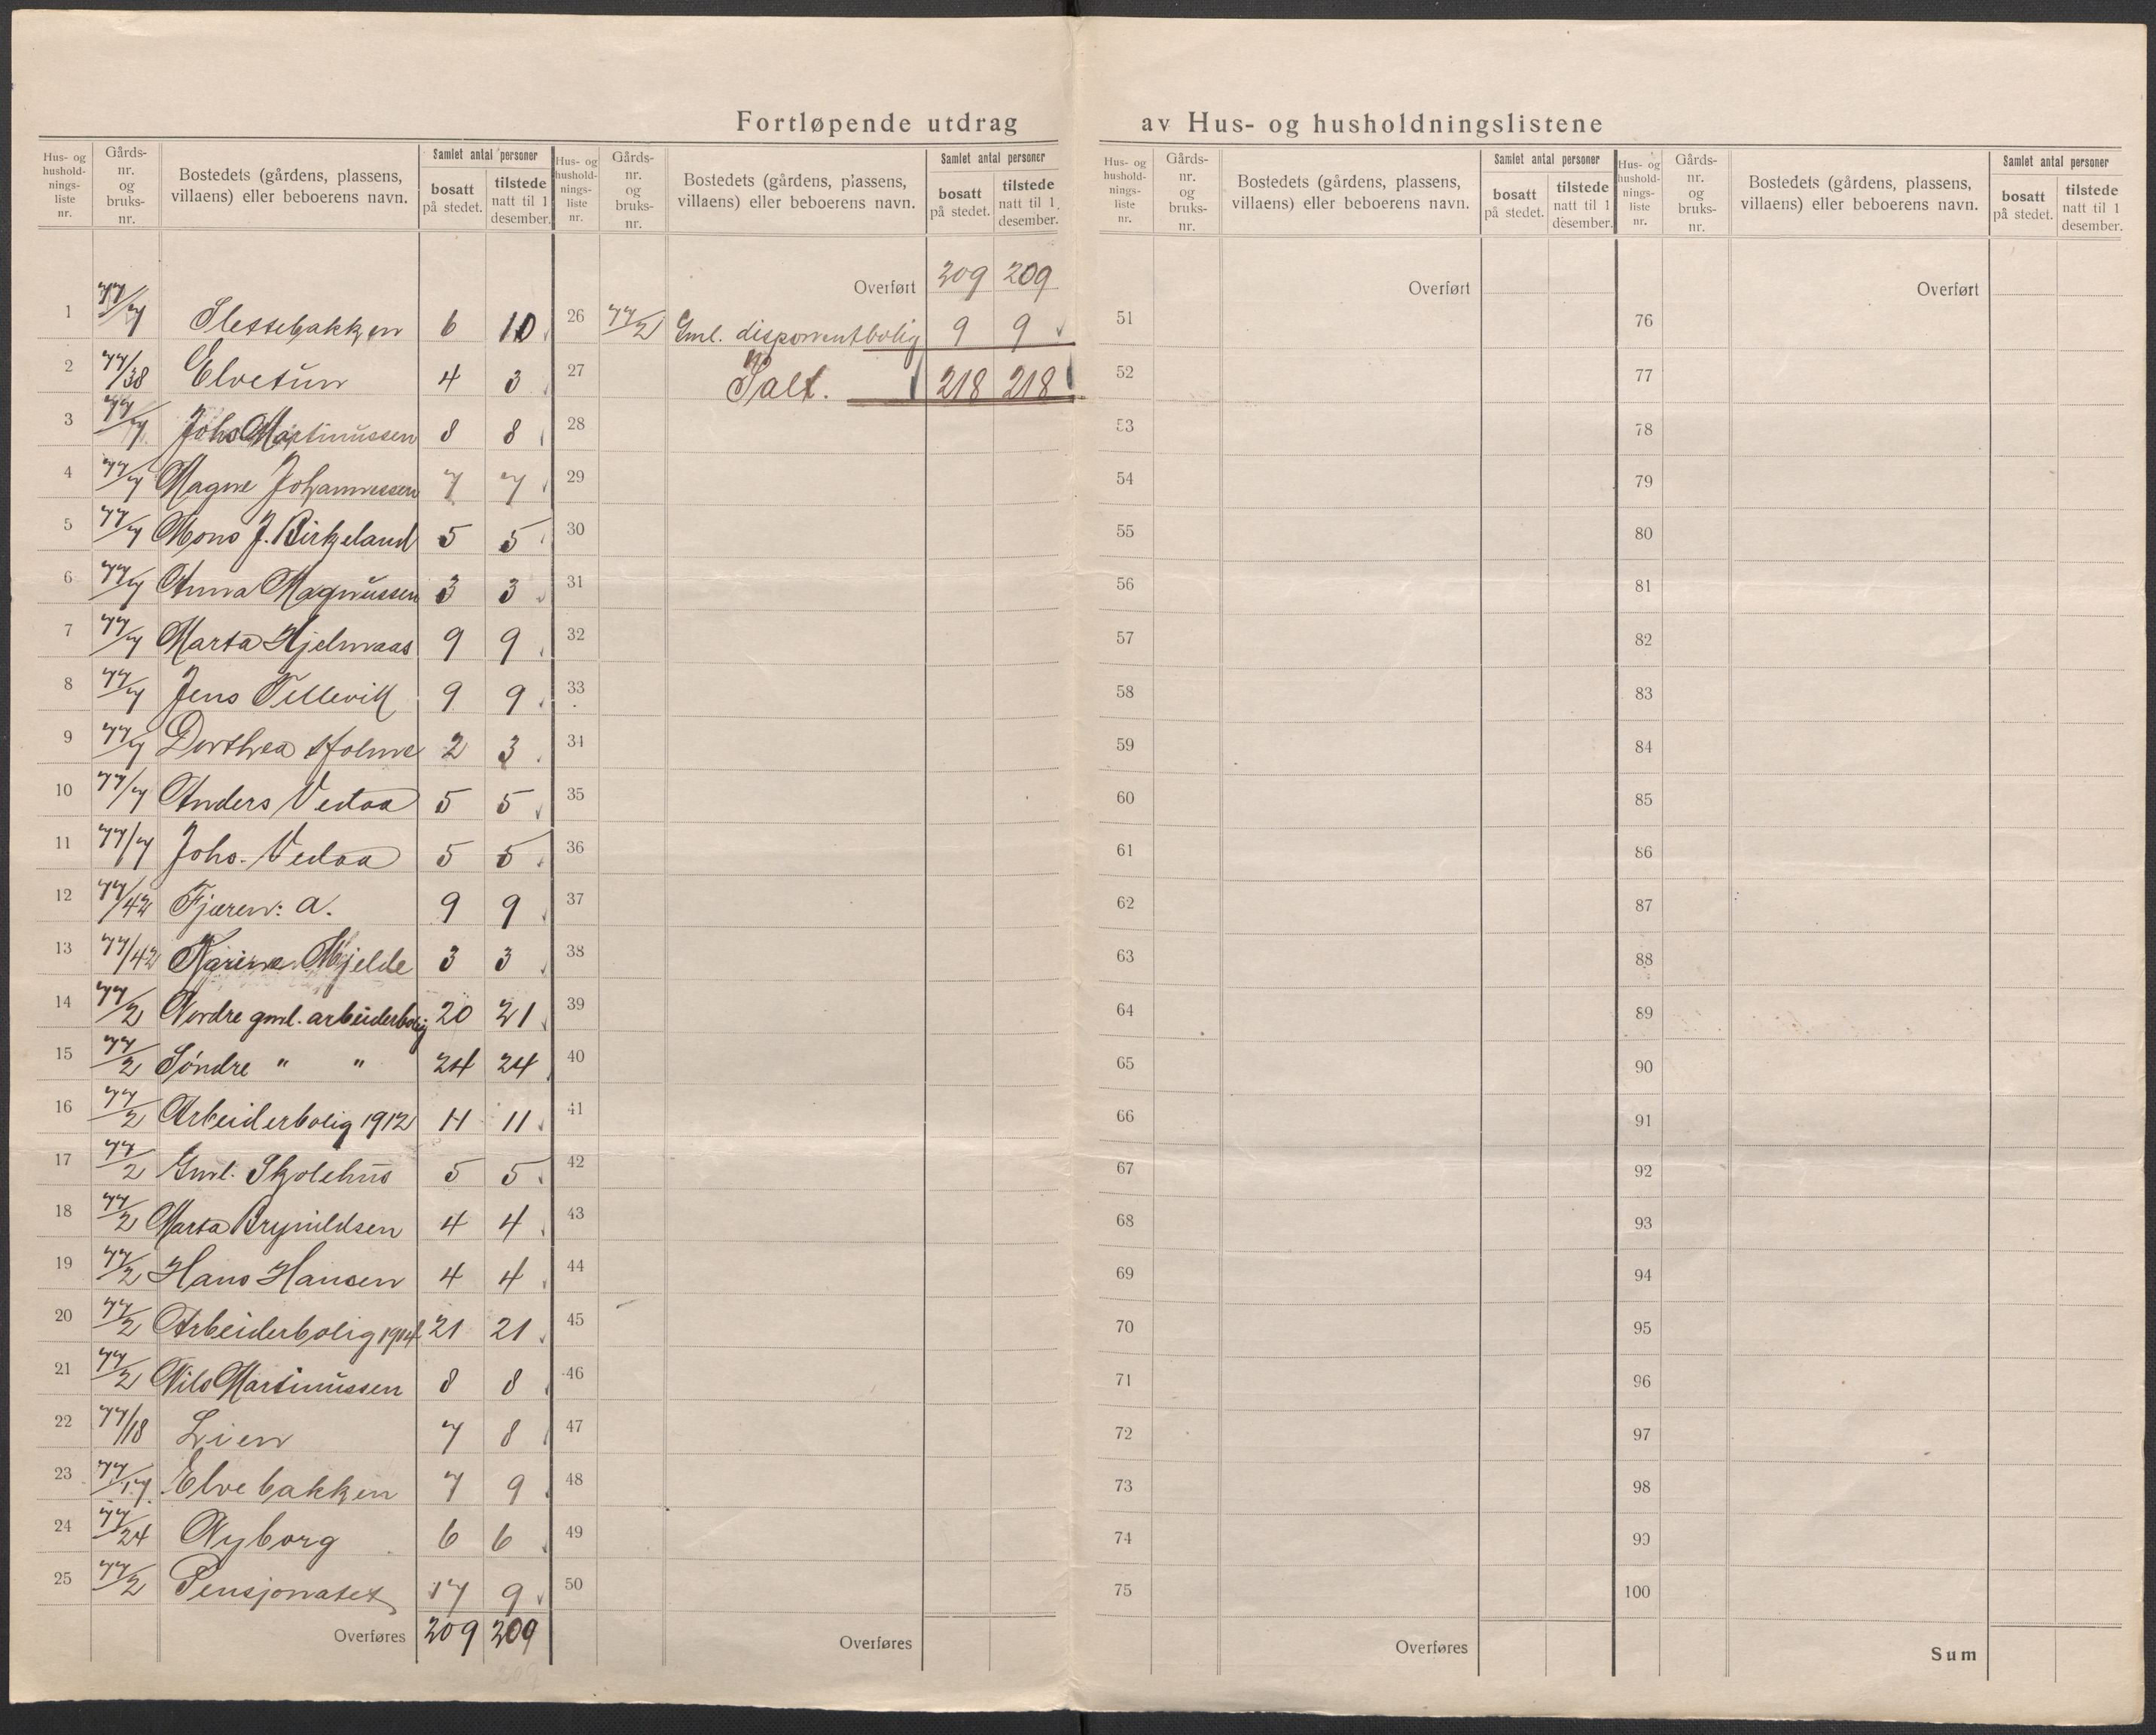 Fortløpende utdrag av Hus- og husholdningslistene
Hus- og husholdnings-liste nr. Gårds-nr. og bruks-nr. Bostedets (gårdens, plassens, villaens) eller beboerens navn. Samlet antal personer bosatt på stedet. tilstede natt til 1 desember.
1 77/7 Slettebakken 6 10
2 77/38 Elvetun 4 3
3 77/7 Johs Martinussen 8 8
4 77/7 Magne Johannessen 7 7
5 77/7 Mons J. Birkeland 5 5
6 77/7 Anna Magnussen 3 3
7 77/7 Marta Hjelmaas 9 9
8 77/7 Jens Tellevik 9 9
9 77/7 Dorthea Holme 2 3
10 77/7 Anders Vedaa 5 5
11 77/7 Johs. Vedaa 5 5
12 77/42 Fjæren: a. 9 9
13 77/42 Karine Mjelde 3 3
14 77/2 Nordre gml. arbeiderbolig 20 21
15 77/2 Søndre " " 24 24
16 77/2 Arbeiderbolig 1912 11 11
17 77/2 Gml. Skolehus 5 5
18 77/2 Marta Brynildsen 4 4
19 77/2 Hans Hansen 4 4
20 77/2 Arbeiderbolig 1914 21 21
21 77/2 Nils Martinussen 8 8
22 77/18 Lien 7 8
23 77/17 Elvebakken 7 9
24 77/24 Nyborg 6 6
25 77/2 Pensjonatet 17 9
Overføres 209 209
Hus- og husholdnings-liste nr. Gårds-nr. og bruks-nr. Bostedets (gårdens, plassens, villaens) eller beboerens navn. Samlet antal personer bosatt på stedet. tilstede natt til 1 desember.
Overført 209 209
26 77/2 Gml. disponentbolig 9 9
27 Talt. 218 218
28
29
30
31
32
33
34
35
36
37
38
39
40
41
42
43
44
45
46
47
48
49
50
Overføres
Hus- og husholdnings-liste nr. Gårds-nr. og bruks-nr. Bostedets (gårdens, plassens, villaens) eller beboerens navn. Samlet antal personer bosatt på stedet. tilstede natt til 1 desember.
Overført
51
52
53
54
55
56
57
58
59
60
61
62
63
64
65
66
67
68
69
70
71
72
73
74
75
Overføres
Hus- og husholdnings-liste nr. Gårds-nr. og bruks-nr. Bostedets (gårdens, plassens, villaens) eller beboerens navn. Samlet antal personer bosatt på stedet. tilstede natt til 1 desember.
Overført
76
77
78
79
80
81
82
83
84
85
86
87
88
89
90
91
92
93
94
95
96
97
98
99
100
Sum